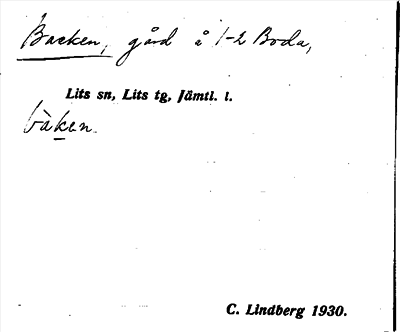 Backen, gård å 1-2 Boda,
Lits sn, Lits tg, Jämtl. l.
bàken.
C. Lindberg 1930.